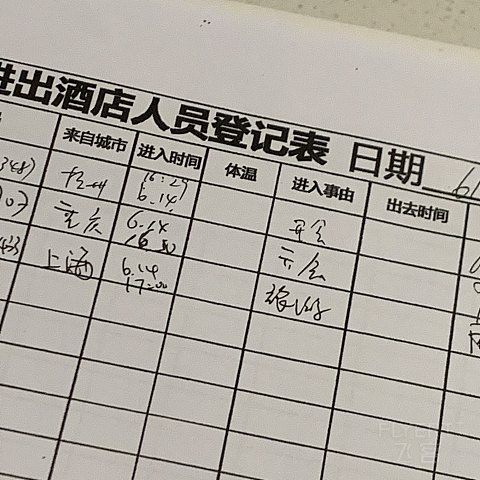 进出酒店人员登记表 日期 6/
来自城市 进入时间 体温 进入事由 出去时间
348) 16:27 6.14 开会
重庆 6.14 16:30 开会
上海 6.14 17:00 旅游